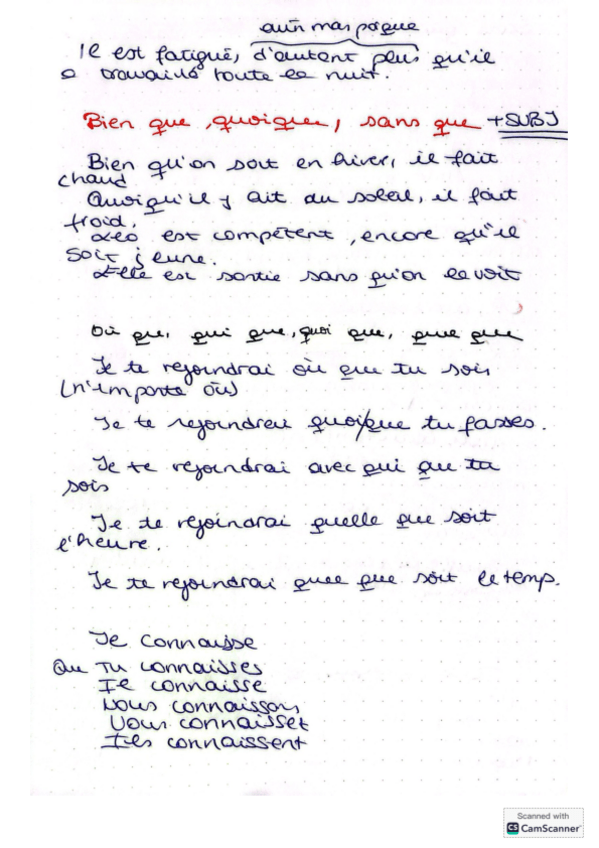 aún mas porque
Il est fatigué, d'autant plus qu'il
a travaillé toute la nuit.
Bien que, quoique, sans que + SUBJ
Bien qu'on soit en hiver, il fait
chaud
Quoiqu'il y ait du soleil, il fait
froid.
Léo est compétent, encore qu'il
soit jeune.
Elle est sortie sans qu'on le voit
Où que, qui que, quoi que, quel que
Je te rejoindrai où que tu sois
(n'importe où)
Je te rejoindrai quoi/que tu fasses.
Je te rejoindrai avec qui que tu
sois
Je te rejoindrai quelle que soit
l'heure.
Je te rejoindrai quel que soit le temps.
Je connaisse
Que Tu connaisses
Il connaisse
Nous connaissons
Vous connaisset
Ils connaissent
Scanned with
CS CamScanner